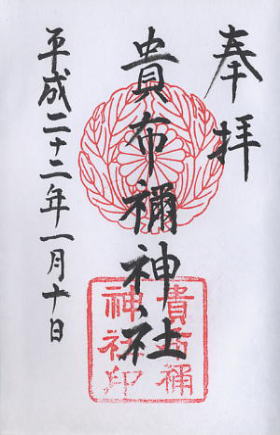 奉拝
貴布禰神社
平成二十二年一月十日
貴布禰
神社印